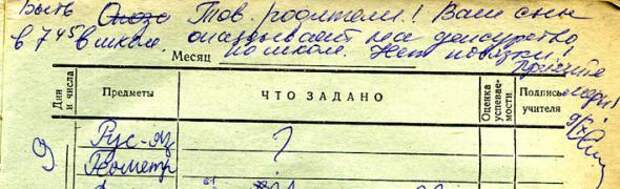 Быть Тов. родители! Ваш сын
в 7 45 в школе. опаздывает на дежурство
по школе. Нет повязки!
Примите
меры!
Месяц
Дни и числа
Предметы
ЧТО ЗАДАНО
Оценка успеваемости
Подпись учителя
9/X
9 Рус-яз ?
Геометр